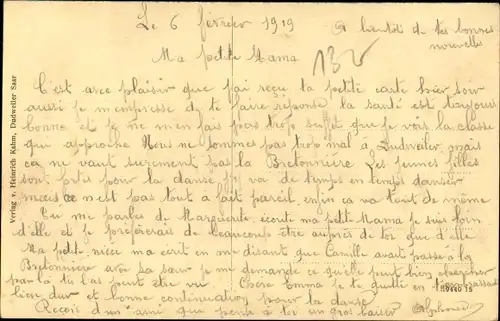 Le 6 février 1919
à bientôt de tes bonnes
nouvelles
Ma petite Mama
132
C'est avec plaisir que j'ai reçu ta petite carte hier soir
aussi je m'empresse de te faire réponse la santé est toujours
bonne et je ne m'en fais pas trop suffit que je vois la classe
qui approche Nous ne sommes pas trop mal à Ludweiler mais
ca ne vaut surement pas la Bretonnière Les jeunes filles
sont fortes pour la danse j'y va de temps en temps danser
mais ce n'est pas tout à fait pareil enfin ca va tout de même
Tu me parles de Marguerite écoute ma petit Mama je suis loin
d'elle et je préférerais de beaucoup être auprès de toi que d'elle
Ma petit nièce ma écrit en me disant que Camille avait passé à la
Bretonnière avec sa sœur je me demande ce qu'elle peut bien chercher
par là tu las peut être vu Chere Emma je te quitte en
bien dur et bonne continuation pour la danse
Reçois d'un ami que pense à toi un gros baiser
Alphonse
Verlag v. Heinrich Kahm, Dudweiler Saar